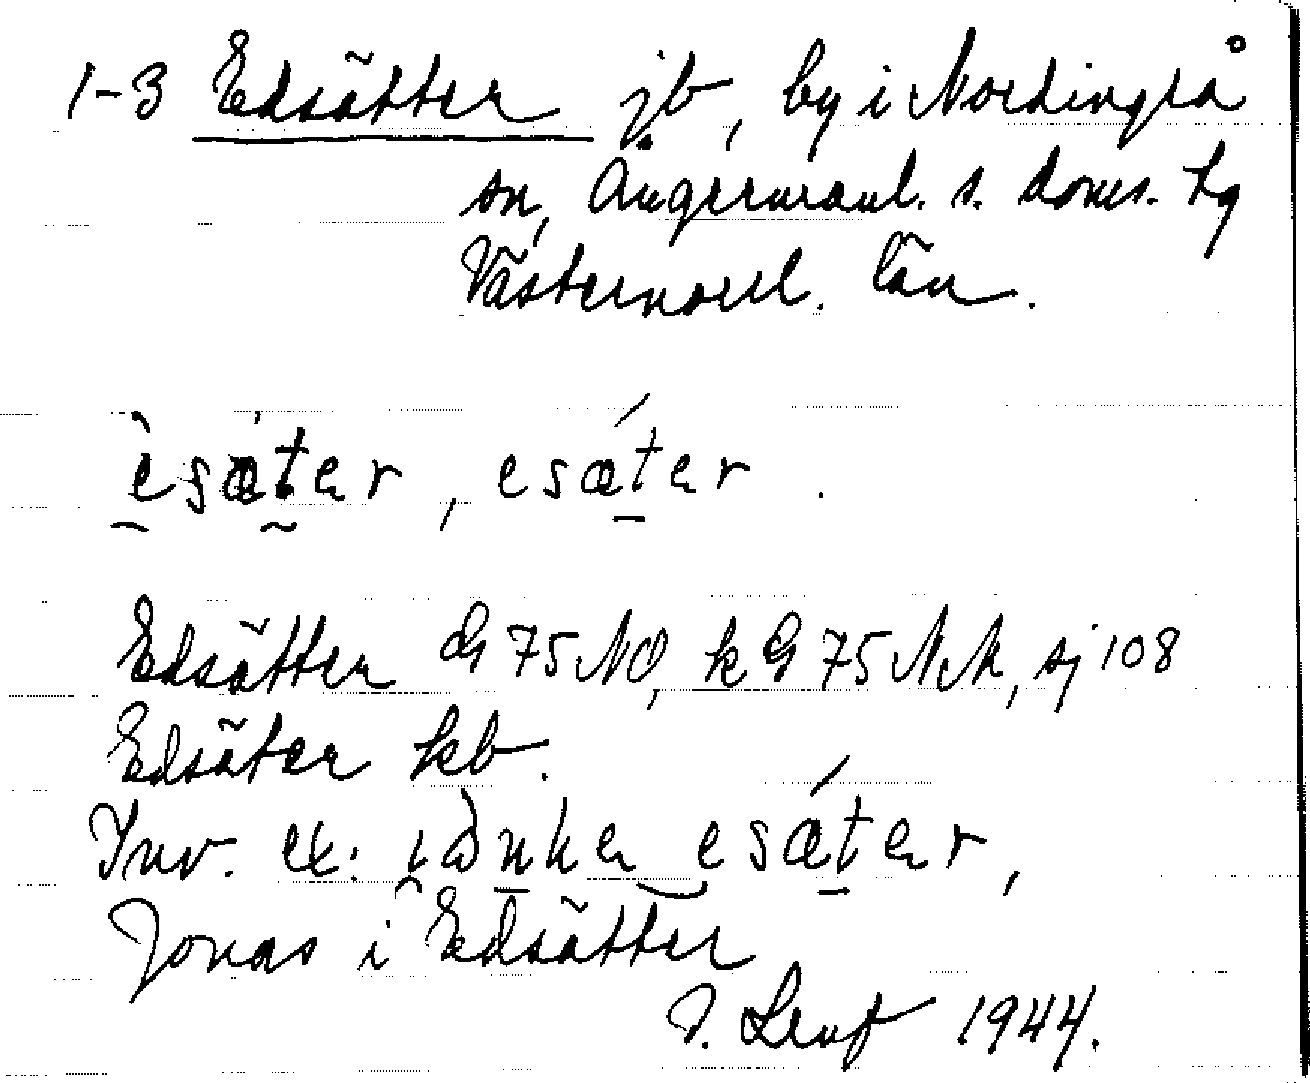 1-3 Edsätter jb, by i Nordingrå
sn, Ångermanl. s. doms. tg
Västernorrl. län.
èsæter, esæter.
Edsätter G 75 NO, k G 75 NM, sj 108
Edsäter kb.
Inv. ex: esæter,
Jonas i Edsätter
1944.